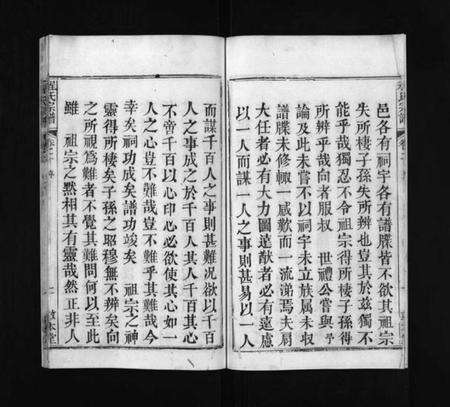 邑各有祠宇各有譜牒皆不欲其祖宗
失所棲子孫失所辨也豈其於兹獨不
能乎哉獨忍不令祖宗得所棲子孫得
所辨乎哉向者服叔 世禮公嘗與予
論及此未嘗不以祠宇未立族屬未收
譜牒未修輙一感歎而一流涕焉夫肩
大任者必有大力圖遠猷者必有遠慮
以一人而謀一人之事則甚易以一人
而謀千百人之事則甚難况欲以千百
人之事成之於千百人其人千百其心
不啻千百以心印心必欲使其心如一
人之心豈不難哉豈不難乎其難哉今
幸矣祠功成矣譜功竣矣 祖宗之神
靈得所棲矣子孫之昭穆無不辨矣向
之所視為難者不覺其難問何以至此
雖 祖宗之黙相其有靈哉然正非人
程氏宗譜
卷之
敦本堂